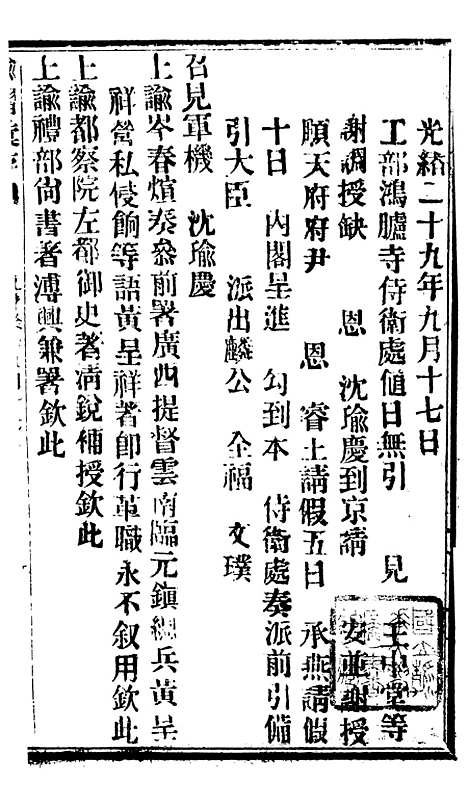 光緒二十九年九月十七日
工部鴻臚寺侍衛處值日無引 見 王中堂等
謝調授缺 恩 沈瑜慶到京請 安並謝授
順天府府尹 恩 睿王請假五日 承燕請假
十日 內閣呈進 勾到本 侍衛處奏派前引備
引大臣 派出麟公 全福 文璞
召見軍機 沈瑜慶
上諭岑春煊奏叅前署廣西提督雲南臨元鎮總兵黃呈
祥營私侵餉等語黃呈祥著卽行革職永不叙用欽此
上諭都察院左都御史著清銳補授欽此
上諭禮部尙書著溥興兼署欽此